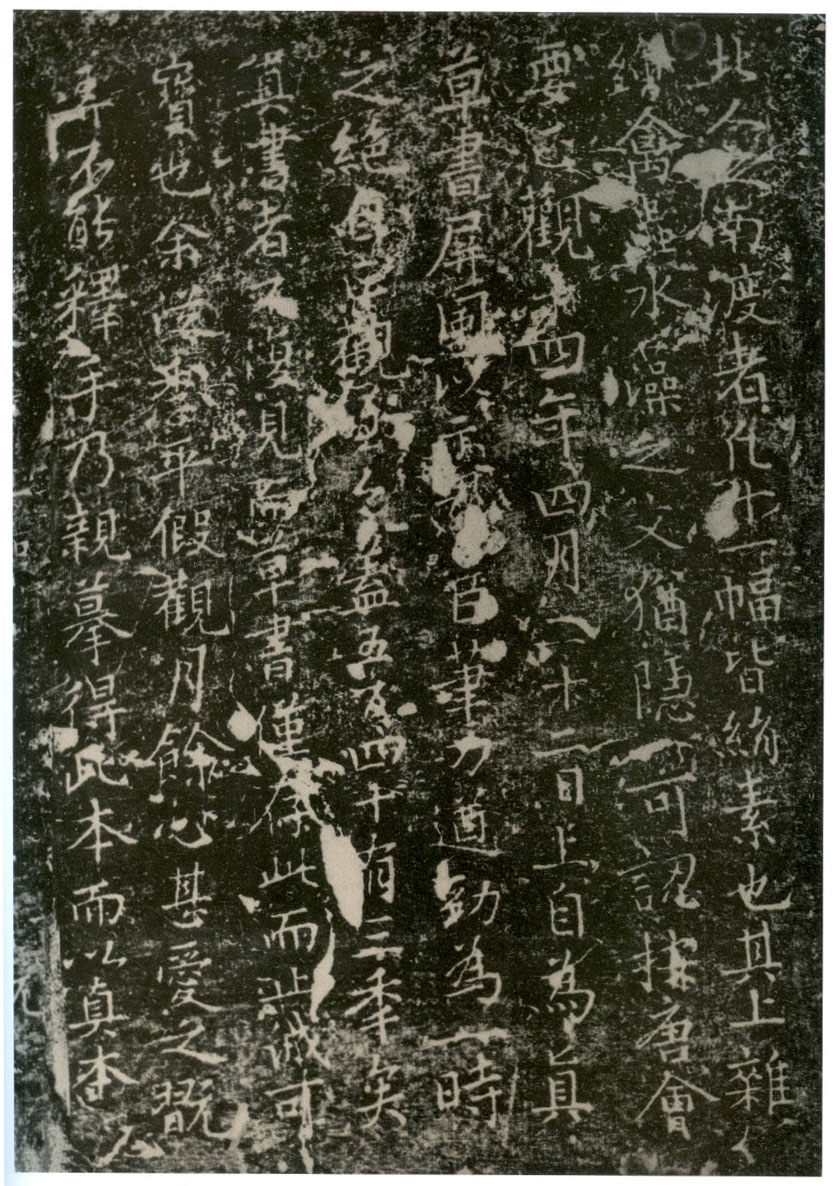 北人南度者凡十一幅皆絹素也其上雜
繪禽水藻之文猶隱可認按唐會
要正觀十四年四月二十二日上自為真
草書屏風以示臣筆力遒勁為一時
之絕自正觀今蓋五百四十有三年矣
真書者不復見而草書僅存此而止誠可
寶也余平假觀月餘心甚愛之既
弄不能釋手乃親摹得此本而以真本